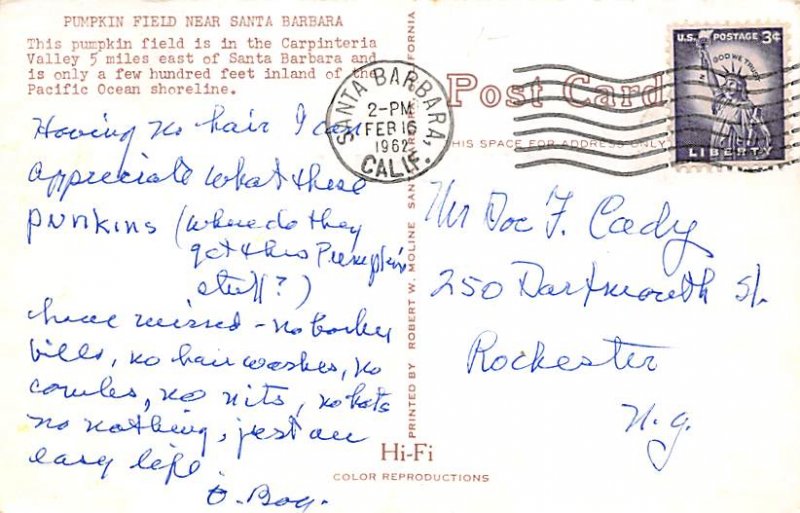 PUMPKIN FIELD NEAR SANTA BARBARA
This pumpkin field is in the Carpinteria
Valley 5 miles east of Santa Barbara and
is only a few hundred feet inland of the
Pacific Ocean shoreline.
Having no hair I can
appreciate what these
punkins (where do they
get this Pumpkin
stuff?)
have missed - no barber
bills, no hair washes, no
combs, no nits, no hats
no nothing, just an
easy life.
SANTA BARBARA,
2-PM
FEB 16
1962
CALIF.
Post Card
THIS SPACE FOR ADDRESS ONLY
U.S. POSTAGE 3¢
IN GOD WE TRUST
LIBERTY
Mr Doc F. Cady
250 Dartmouth St.
Rochester
N.Y.
PRINTED BY ROBERT W. MOLINE SAN CALIFORNIA
Hi-Fi
COLOR REPRODUCTIONS